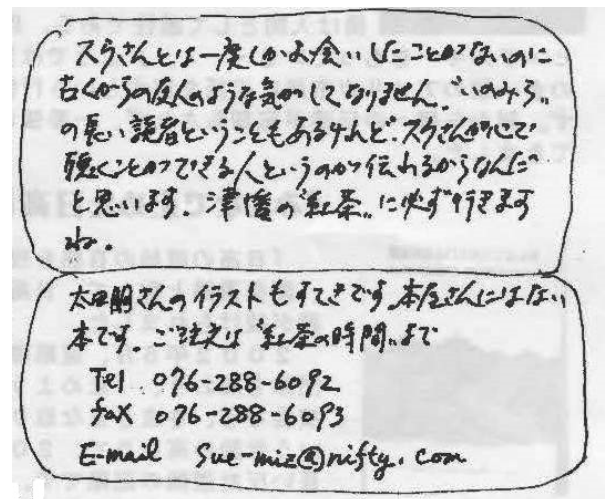 スウさんとは一度しかお会いしたことがないのに
古くからの友人のような気がしてなりません。"いのみら"
の長い読者ということもあるけれど、スウさんが心で
聴くことのできる人というのが伝わるからなんだ
と思います。津幡の"紅茶"に必ず行きます
ね。
さんのイラストもすてきです。本屋さんにはない
本です。ご注文は"紅茶の時間"まで
Tel 076-288-6092
fax 076-288-6093
E-mail Sue-miz@nifty.com